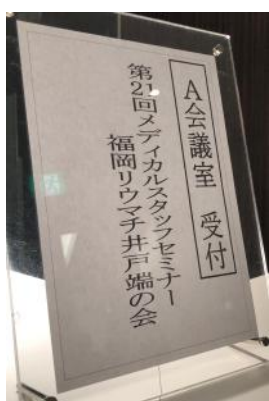 A会議室 受付
第21回メディカルスタッフセミナー
福岡リウマチ井戸端の会